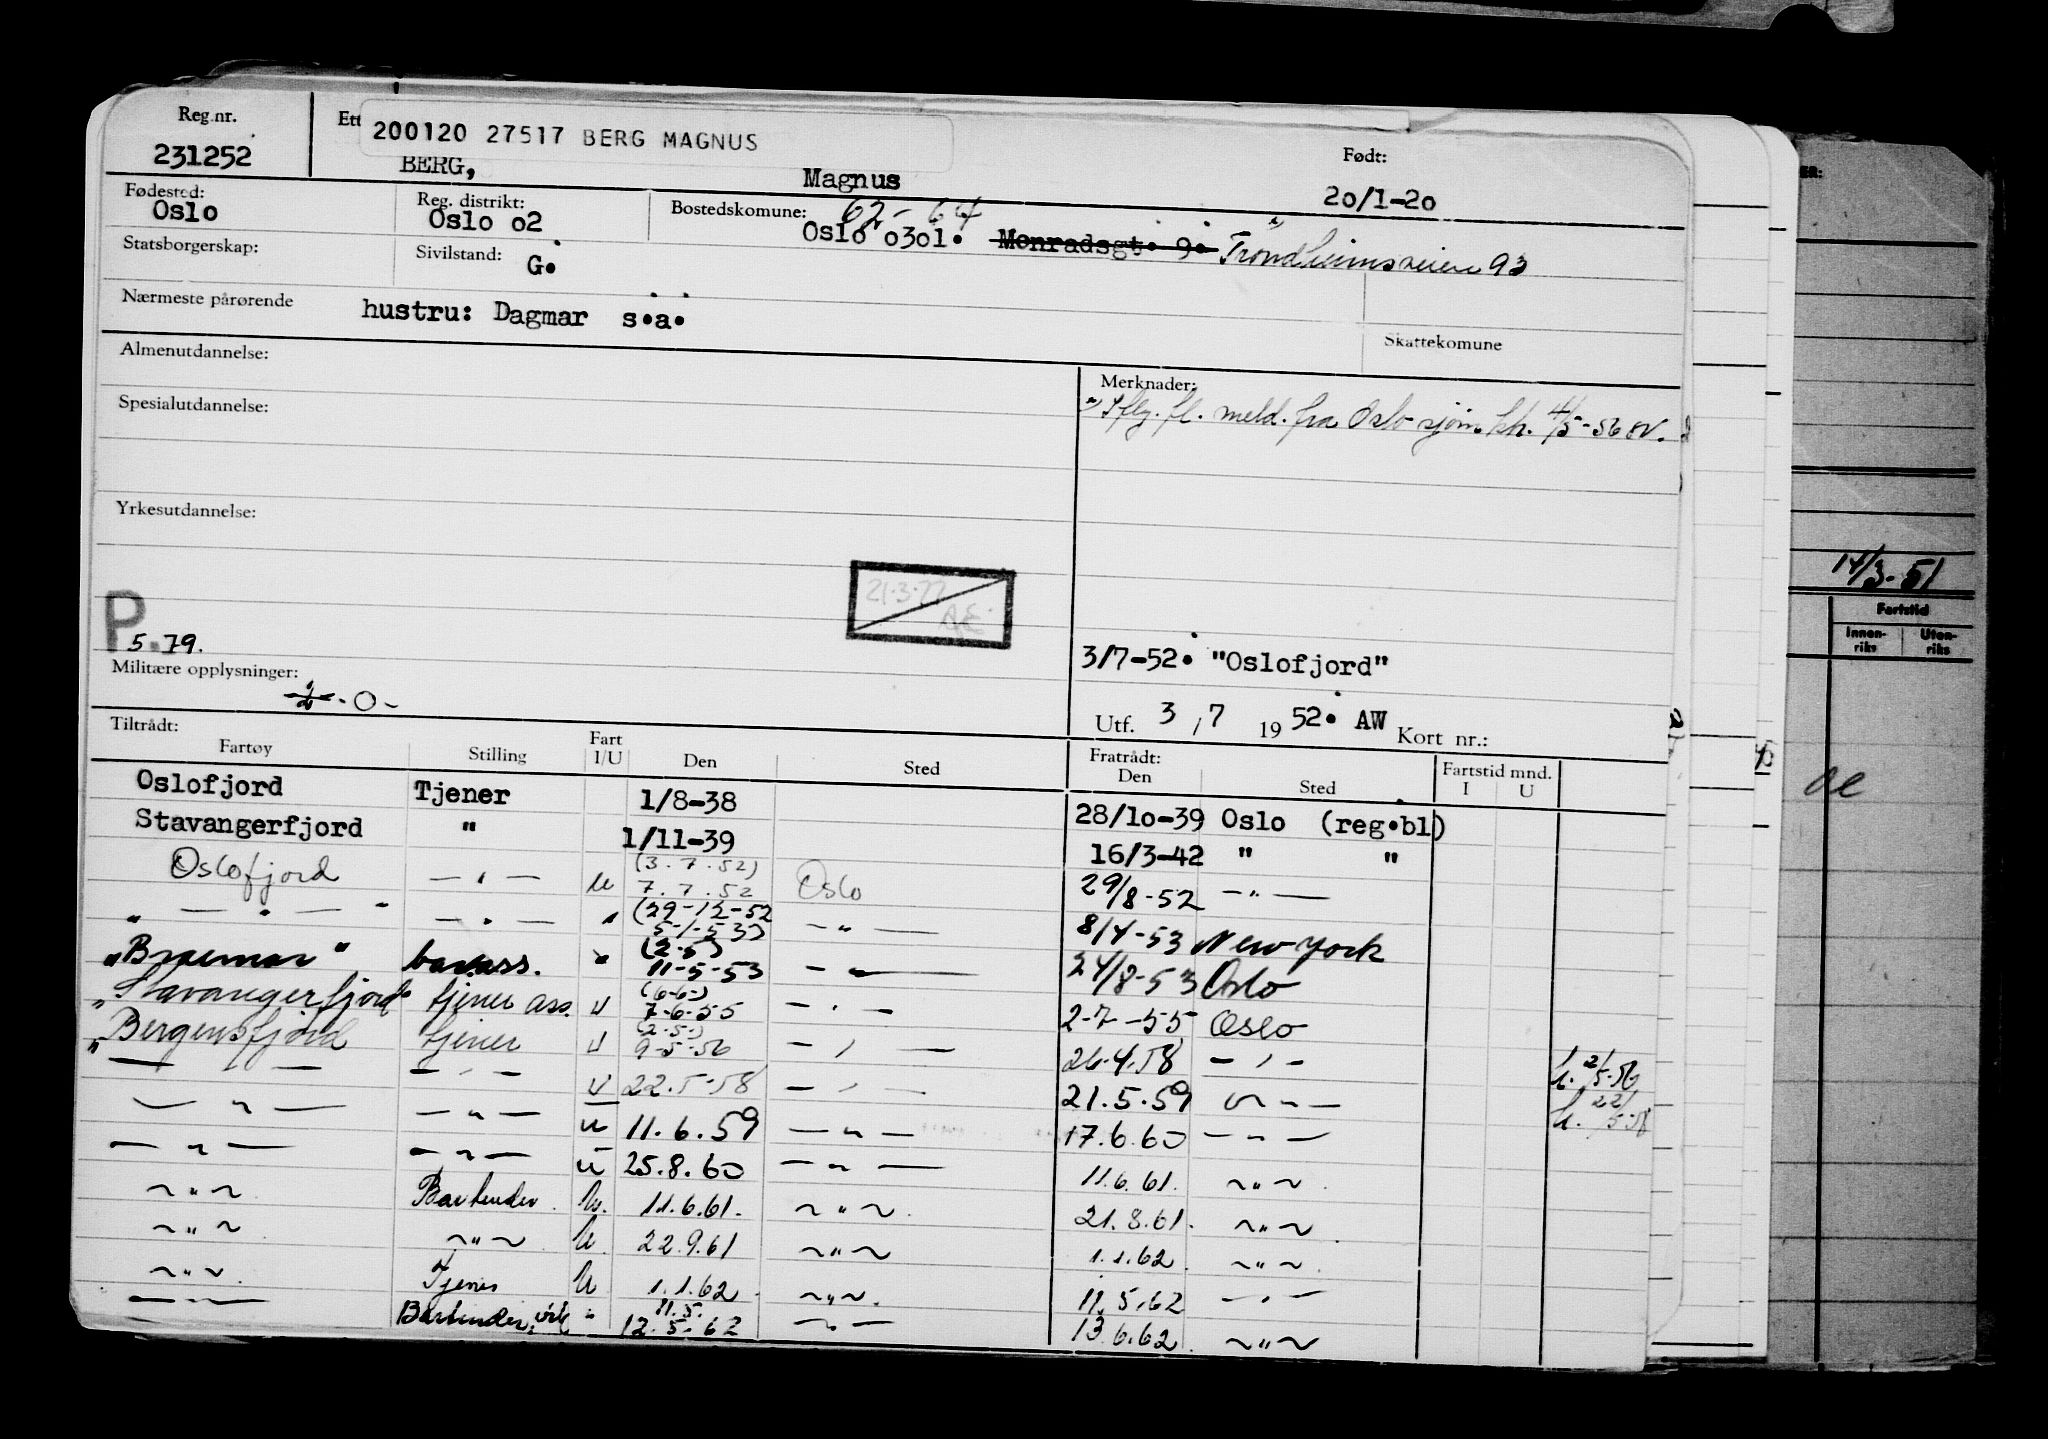 Reg.nr. Ett
200120 27517 BERG MAGNUS
Født:
231252 BERG, Magnus 20/1-20
Fødested: Reg. distrikt: Bostedskomune: 62-64
Oslo Oslo o2 Oslo o3o1. Monradsgt. 9. Trondheimsveien 93
Statsborgerskap: Sivilstand: G.
Nærmeste pårørende hustru: Dagmar s.a.
Skattekomune
Almenutdannelse:
Merknader:
Iflg. fl. meld. fra Oslo sjøm. kh. 4/5-56
Spesialutdannelse:
Yrkesutdannelse:
21.3.77
AE
P
5.79.
3/7-52. "Oslofjord"
Militære opplysninger: -0-
Utf. 3 / 7 19 52. AW Kort nr.:
Tiltrådt: Fratrådt:
Fartøy Stilling Fart I/U Den Sted Den Sted Fartstid mnd. I U
Oslofjord Tjener 1/8-38 28/1o-39 Oslo (reg.bl)
Stavangerfjord " 1/11-39 16/3-42 " "
Oslofjord — " — u (3.7.52) 7.7.52 Oslo 29/8-52 — " —
" — " — " — " — " (29-12-52 5-1-53) — " — 8/4-53 New York
"Braemar" barass. " (2-5) 11-5-53 — " — 24/8-53 Oslo
"Stavangerfjord" tjener ass. U (6-6-) 7-6-55 — " — 2-7-55 Oslo
"Bergensfjord tjener U (2-5-) 9-5-56 — " — 26.4.58 — " — 2/5-56
— " — — " — U 22.5-58 — " — 21.5.59 — " — 22/5-58
— " — — " — u 11.6.59 — " — 17.6.60 — " —
— " — — " — u 25.8.60 — " — 11.6.61. ~ " ~
~ " ~ Bartender. U. 11.6.61. ~ " ~ 21.8.61. ~ " ~
~ " ~ ~ " ~ U 22.9.61 ~ " ~ 1.1.62 ~ " ~
~ " ~ Tjener U 1.1.62 ~ " ~ 11.5.62 — " —
— " — Bartender " 11.5. 12.5.62 ~ " — 13.6.62. ~ " ~
ER:
14/3-51
Fartstid
Innen-riks Uten-riks